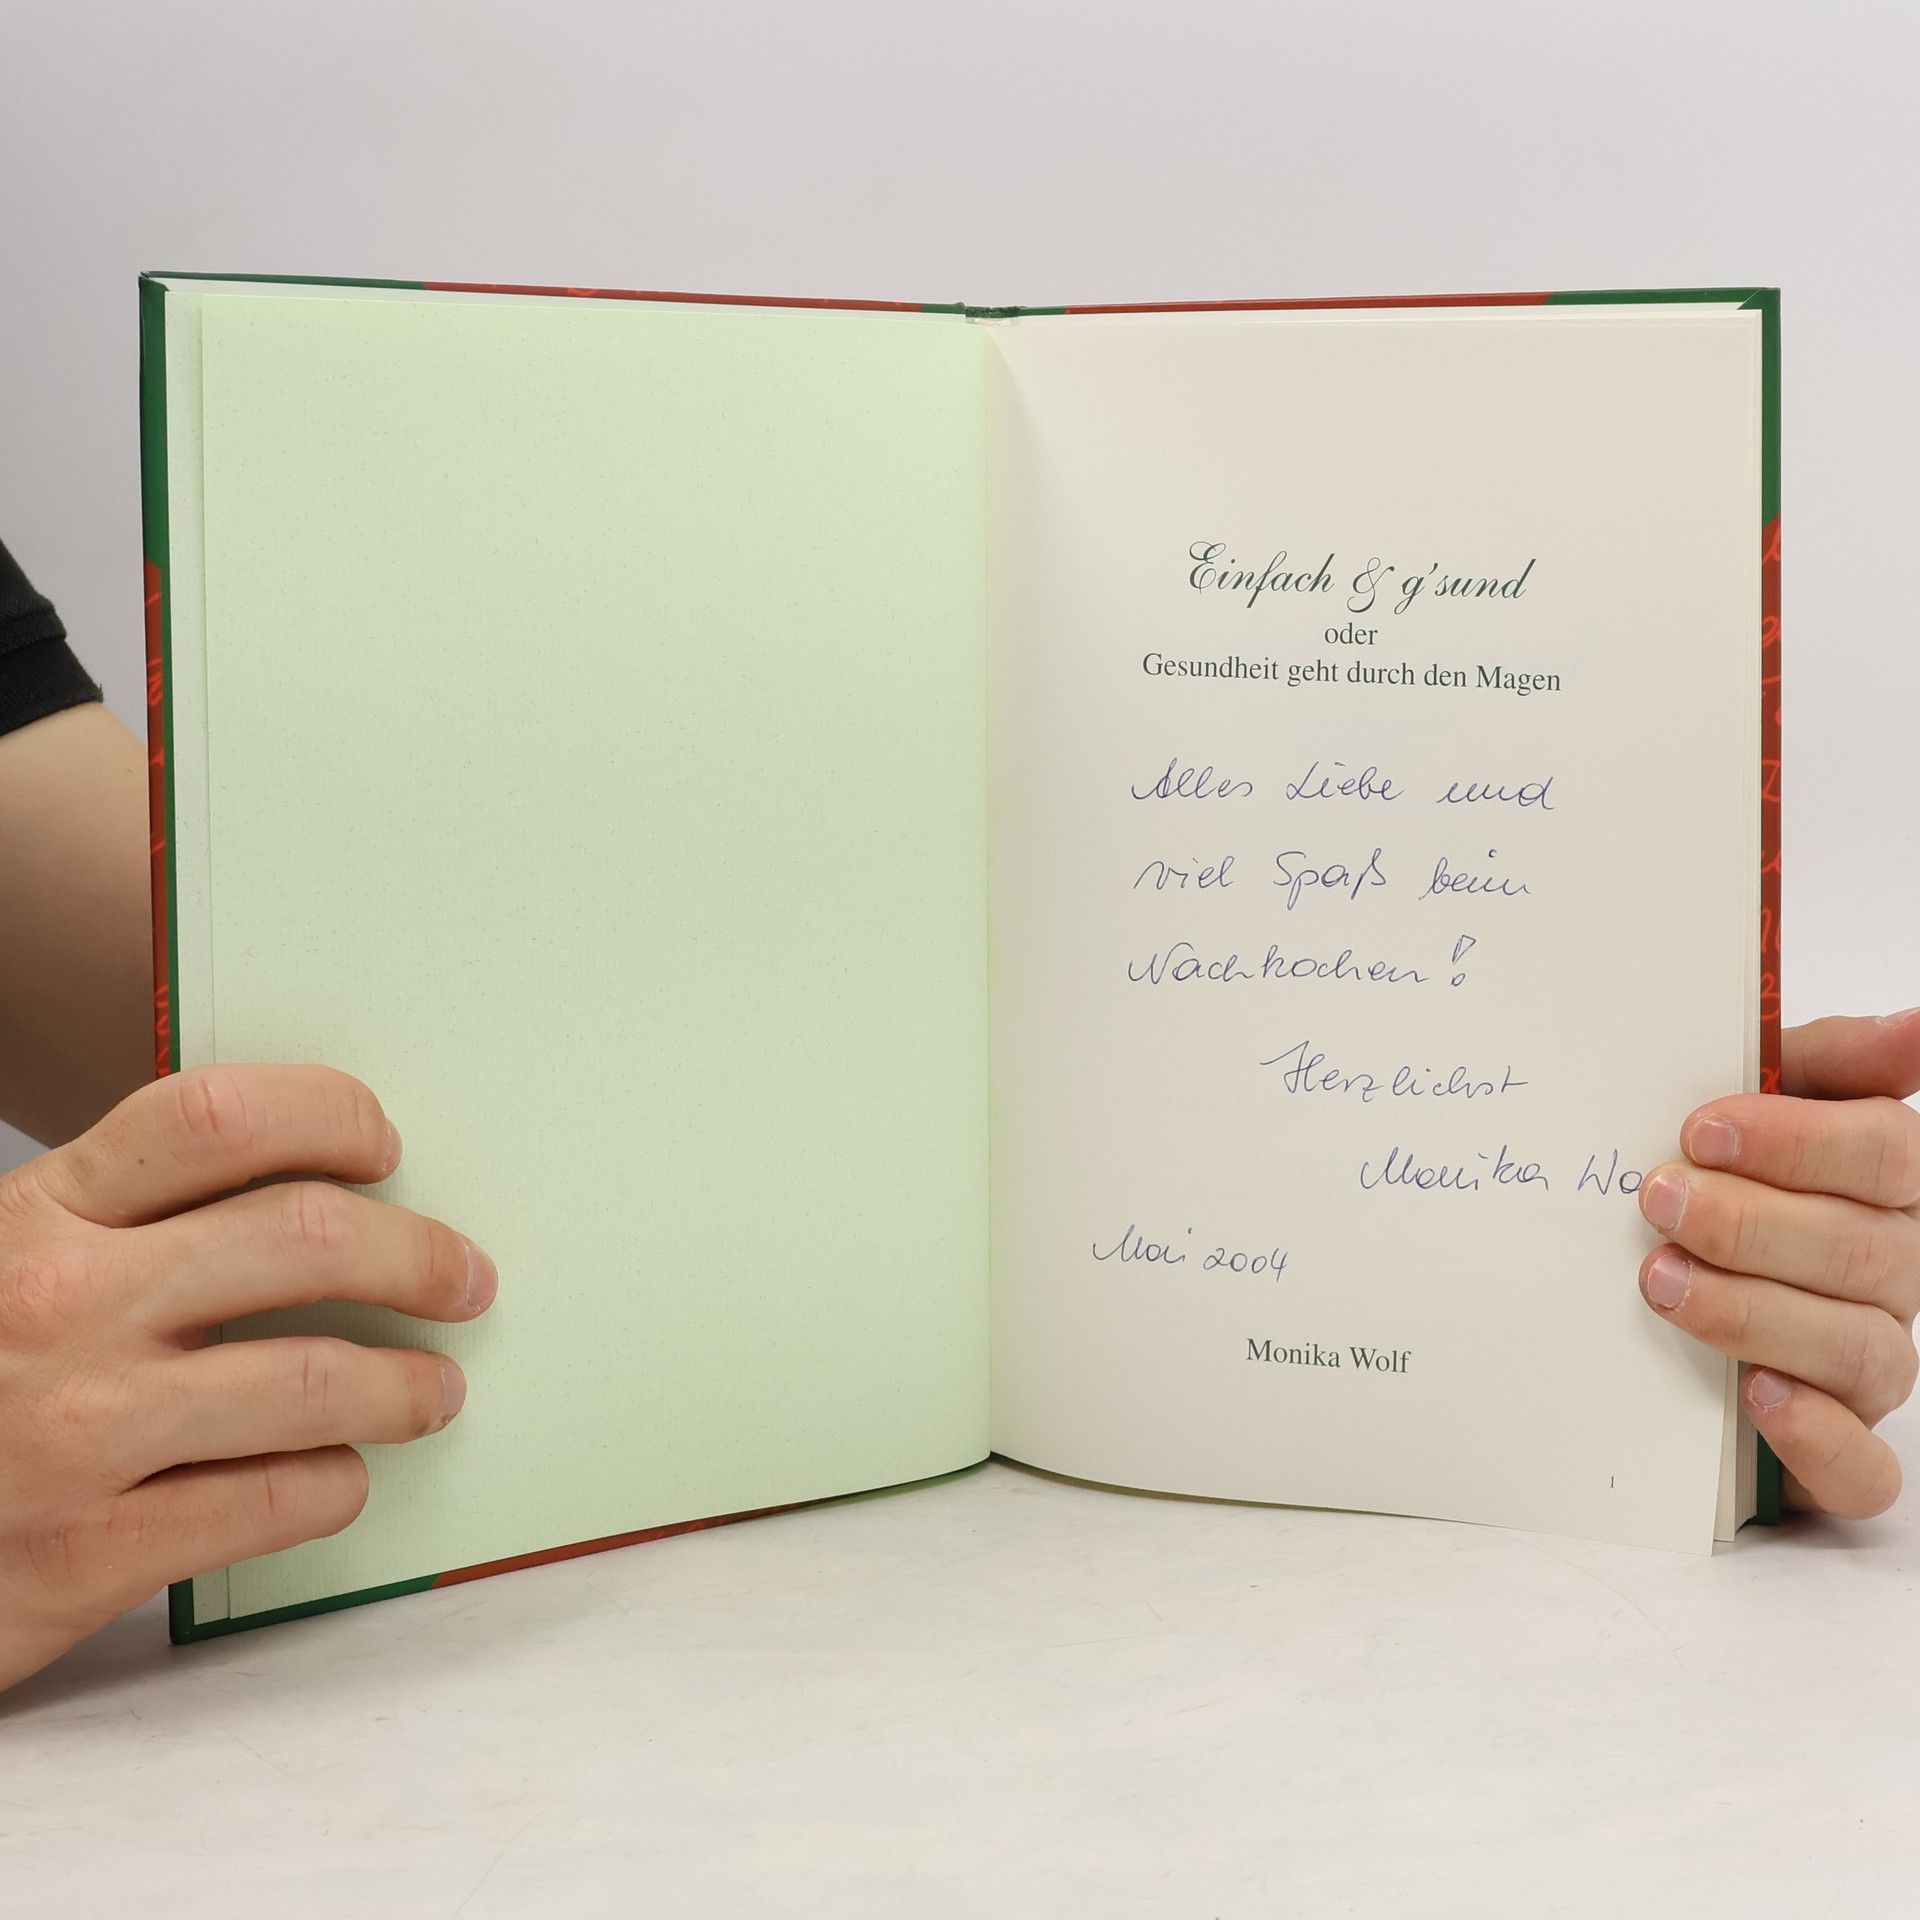 Einfach & g'sund
oder
Gesundheit geht durch den Magen
Alles Liebe und
viel Spaß beim
Nachkochen!
Herzlichst
Monika Wo
Mai 2004
Monika Wolf
1